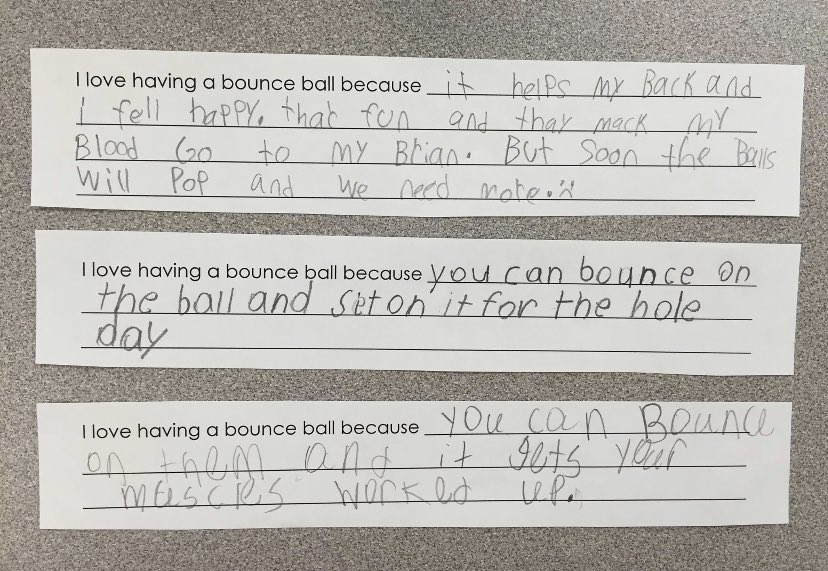 I love having a bounce ball because it helps my Back and
I fell happy. that fun and thay mack my
Blood Go to my Brian. But Soon the Balls
Will Pop and we need more. :(
I love having a bounce ball because you can bounce on
the ball and set on it for the hole
day
I love having a bounce ball because you can Bounce
on them and it gets your
muscles worked up.